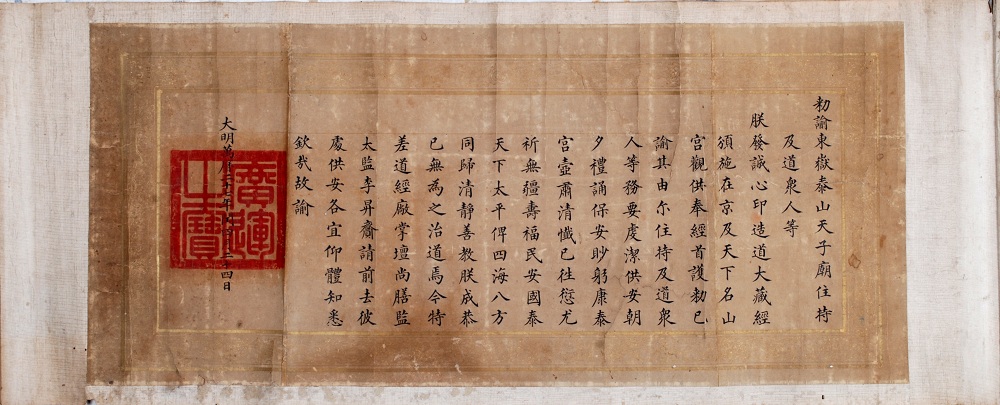 勅諭東嶽泰山天子廟住持
及道衆人等
朕發誠心印造道大藏經
頒施在京及天下名山
宮觀供奉經首護勅已
諭其由尔住持及道衆
人等務要虔潔供安朝
夕禮誦保安眇躬康泰
宮壼肅清懺已徃愆尤
祈無疆壽福民安國泰
天下太平俾四海八方
同歸清靜善教朕成恭
已無為之治道焉今特
差道經廠掌壇尚膳監
太監李昇齎請前去彼
處供安各宜仰體知悉
欽哉故諭
大明萬曆二十年四日
廣運之寶